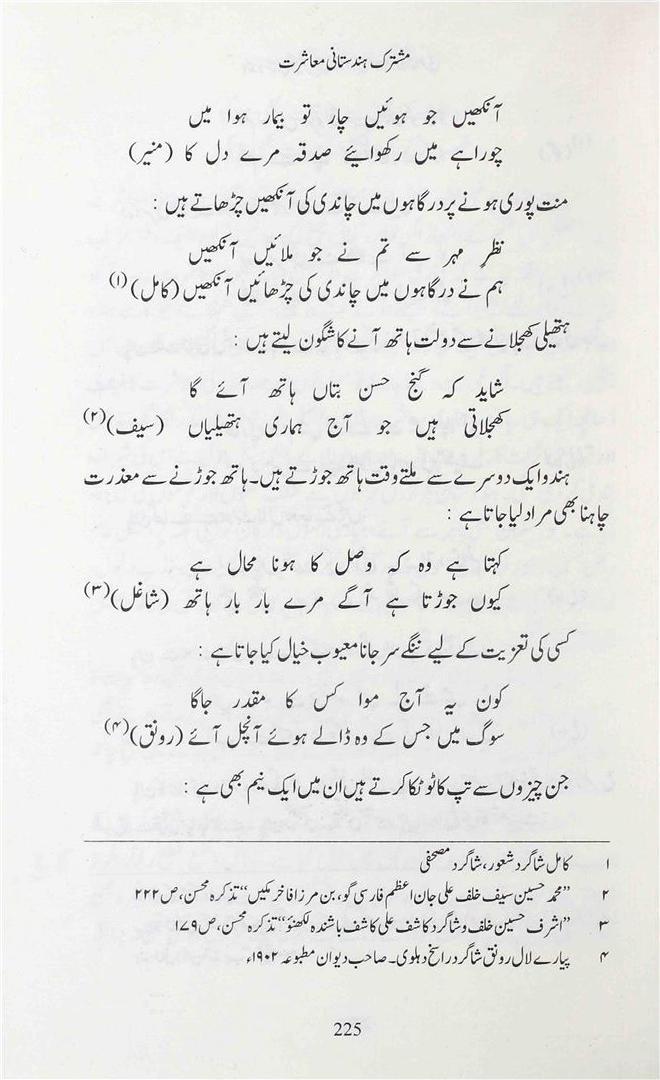 مشترک ہندستانی معاشرت
آنکھیں جو ہوئیں چار تو بیمار ہوا میں
چوراہے میں رکھوایئے صدقہ مرے دل کا (منیر)
منت پوری ہونے پر درگاہوں میں چاندی کی آنکھیں چڑھاتے ہیں :
نظرِ مہر سے تم نے جو ملائیں آنکھیں
ہم نے درگاہوں میں چاندی کی چڑھائیں آنکھیں (کامل)(۱)
ہتھیلی کھجلانے سے دولت ہاتھ آنے کا شگون لیتے ہیں :
شاید کہ گنج حسن بتاں ہاتھ آئے گا
کھجلاتی ہیں جو آج ہماری ہتھیلیاں (سیف)(۲)
ہندو ایک دوسرے سے ملتے وقت ہاتھ جوڑتے ہیں۔ ہاتھ جوڑنے سے معذرت
چاہنا بھی مراد لیا جاتا ہے :
کہتا ہے وہ کہ وصل کا ہونا محال ہے
کیوں جوڑتا ہے آگے مرے بار بار ہاتھ (شاغل)(۳)
کسی کی تعزیت کے لیے ننگے سر جانا معیوب خیال کیا جاتا ہے :
کون یہ آج موا کس کا مقدر جاگا
سوگ میں جس کے وہ ڈالے ہوئے آنچل آئے (رونق)(۴)
جن چیزوں سے تپ کا ٹوٹکا کرتے ہیں ان میں ایک نیم بھی ہے :
۱ کامل شاگرد شعور، شاگرد مصحفی
۲ ”محمد حسین سیف خلف علی جان اعظم فارسی گو، بن مرزا فاخر مکیں“ تذکرہ محسن، ص ۲۲۲
۳ ”اشرف حسین خلف و شاگرد کاشف علی کاشف باشندہ لکھنؤ“ تذکرہ محسن، ص ۱۷۹
۴ پیارے لال رونق شاگرد راسخ دہلوی۔ صاحب دیوان مطبوعہ ۱۹۰۲ء
225